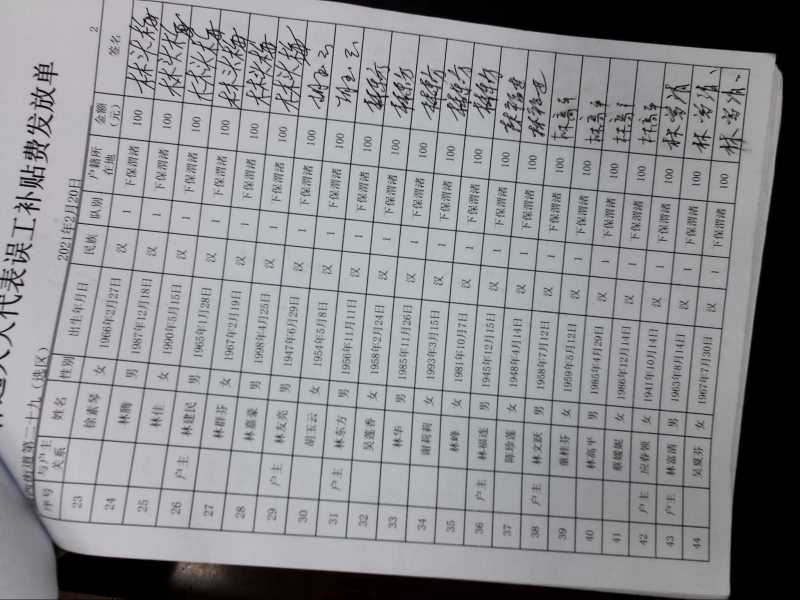 大代表误工补贴费发放单
街道第二十九（选区） 2021年2月20日 2
序号 与户主关系 姓名 性别 出生年月日 民族 队别 户籍所在地 金额（元） 签名
23 徐素琴 女 1966年2月27日 汉 1 下保渭渚 100
24 林腾 男 1987年12月18日 汉 1 下保渭渚 100
25 林佳 女 1990年5月15日 汉 1 下保渭渚 100
26 户主 林建民 男 1965年1月28日 汉 1 下保渭渚 100
27 林群芬 女 1967年2月19日 汉 1 下保渭渚 100
28 林嘉豪 男 1998年4月25日 汉 1 下保渭渚 100
29 户主 林友亮 男 1947年6月29日 汉 1 下保渭渚 100
30 胡玉云 女 1954年5月8日 汉 1 下保渭渚 100
31 户主 林东方 男 1956年11月11日 汉 1 下保渭渚 100
32 吴莲香 女 1958年2月24日 汉 1 下保渭渚 100
33 林华 男 1985年11月26日 汉 1 下保渭渚 100
34 谢莉莉 女 1993年3月15日 汉 1 下保渭渚 100
35 林峰 女 1981年10月7日 汉 1 下保渭渚 100
36 户主 林福连 男 1945年12月15日 汉 1 下保渭渚 100
37 陈珍莲 女 1948年4月14日 汉 1 下保渭渚 100
38 户主 林文跃 男 1958年7月12日 汉 1 下保渭渚 100
39 童桂芬 女 1959年5月12日 汉 1 下保渭渚 100
40 林高平 男 1985年4月29日 汉 1 下保渭渚 100 林高平
41 蔡媛妮 女 1986年12月14日 汉 1 下保渭渚 100 林高平
42 户主 应春领 女 1941年10月14日 汉 1 下保渭渚 100
43 户主 林富清 男 1963年8月14日 汉 1 下保渭渚 100
44 吴夏芬 女 1967年7月30日 汉 1 下保渭渚 100